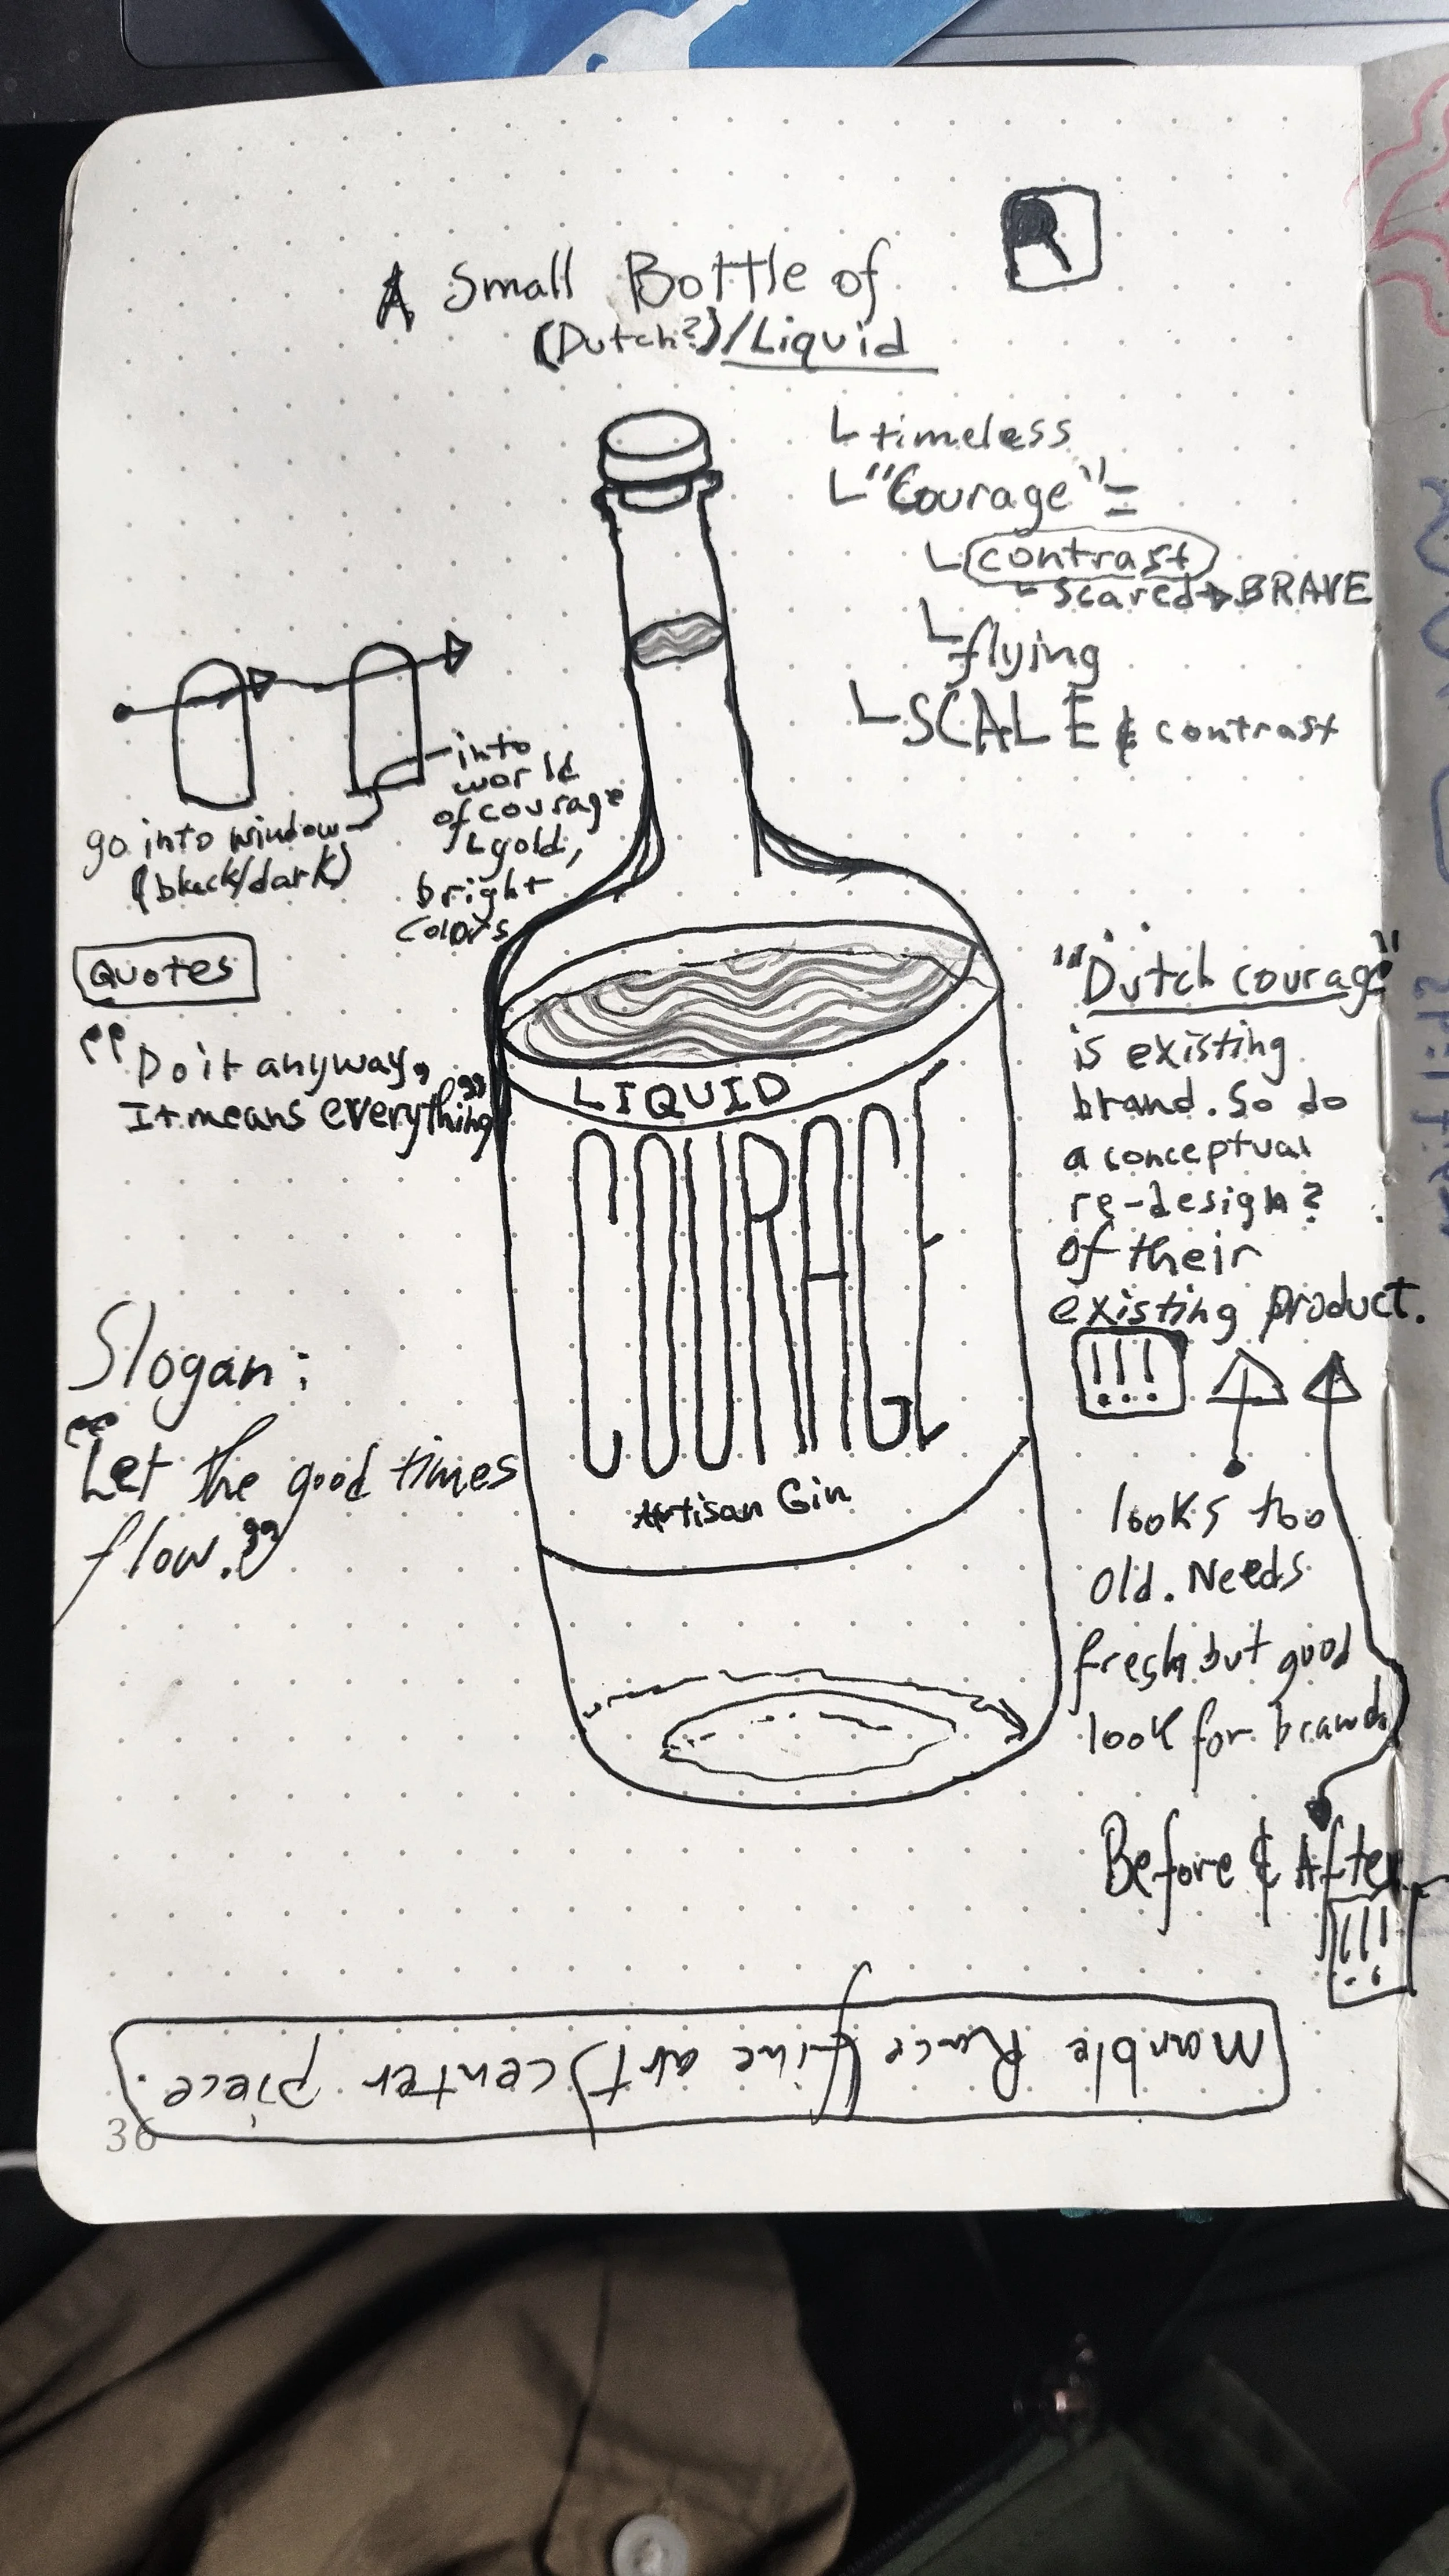 A Small Bottle of
(Dutch?)/Liquid
timeless
"Courage" =
contrast
scared → BRAVE
flying
SCALE & contrast
into
world
of courage
gold,
bright
colors
go into window
(black/dark)
QUOTES
"Do it anyway,
It means everything"
Slogan:
"Let the good times
flow."
LIQUID
COURAGE
Artisan Gin
"Dutch courage"
is existing
brand. So do
a conceptual
re-design?
of their
existing product.
!!!
looks too
old. Needs
fresh but good
look for brand
Before & After
!!!
Marble Race (fine art) center piece.
36